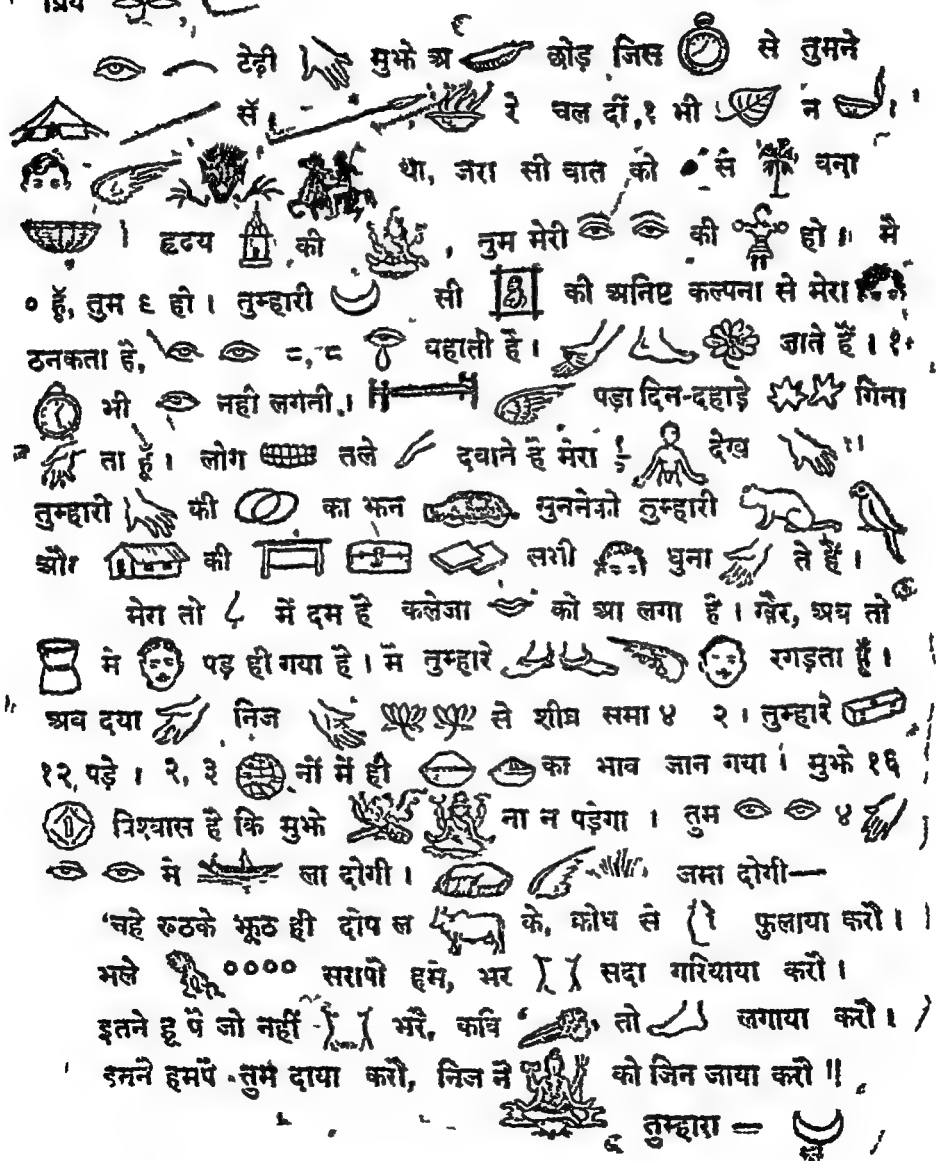 प्रिय
टेढ़ी मुझे अ छोड़ जिस से तुमने
से रे चल दीं, १ भी न ।
था, जरा सी बात को से बना
। हृदय की , तुम मेरी की हो । मै
० हूँ, तुम ६ हो । तुम्हारी सी की अनिष्ट कल्पना से मेरा
ठनकता है, =, = बहाती है । जाते हैं । १
भी नहीं लगती । पड़ा दिन-दहाड़े गिना
ता हूँ । लोग तले दबाते है मेरा देख
तुम्हारी की का झन सुननेको तुम्हारी
और की सभी धुना ते हैं ।
मेरा तो में दम है कलेजा को आ लगा है । खैर, अब तो
मे पड़ ही गया है । मै तुम्हारे रगड़ता हूँ ।
अब दया निज से शीघ्र समा ४ २ । तुम्हारे
१२ पड़े । २, ३ नों में ही का भाव जान गया । मुझे १६
विश्वास है कि मुझे ना न पड़ेगा । तुम ४
मे ला दोगी । जमा दोगी—
'चहे रुठके झूठ ही दोष ल के, क्रोध से फुलाया करौ ।
भले ०००० सरापौ हमे, भर सदा गरियाया करौ ।
इतने हू पै जो नहीं भरै, कवि तो लगाया करौ ।
इमने हमपै तुम दाया करौ, निज नै को जिन जाया करौ ॥
तुम्हारा =